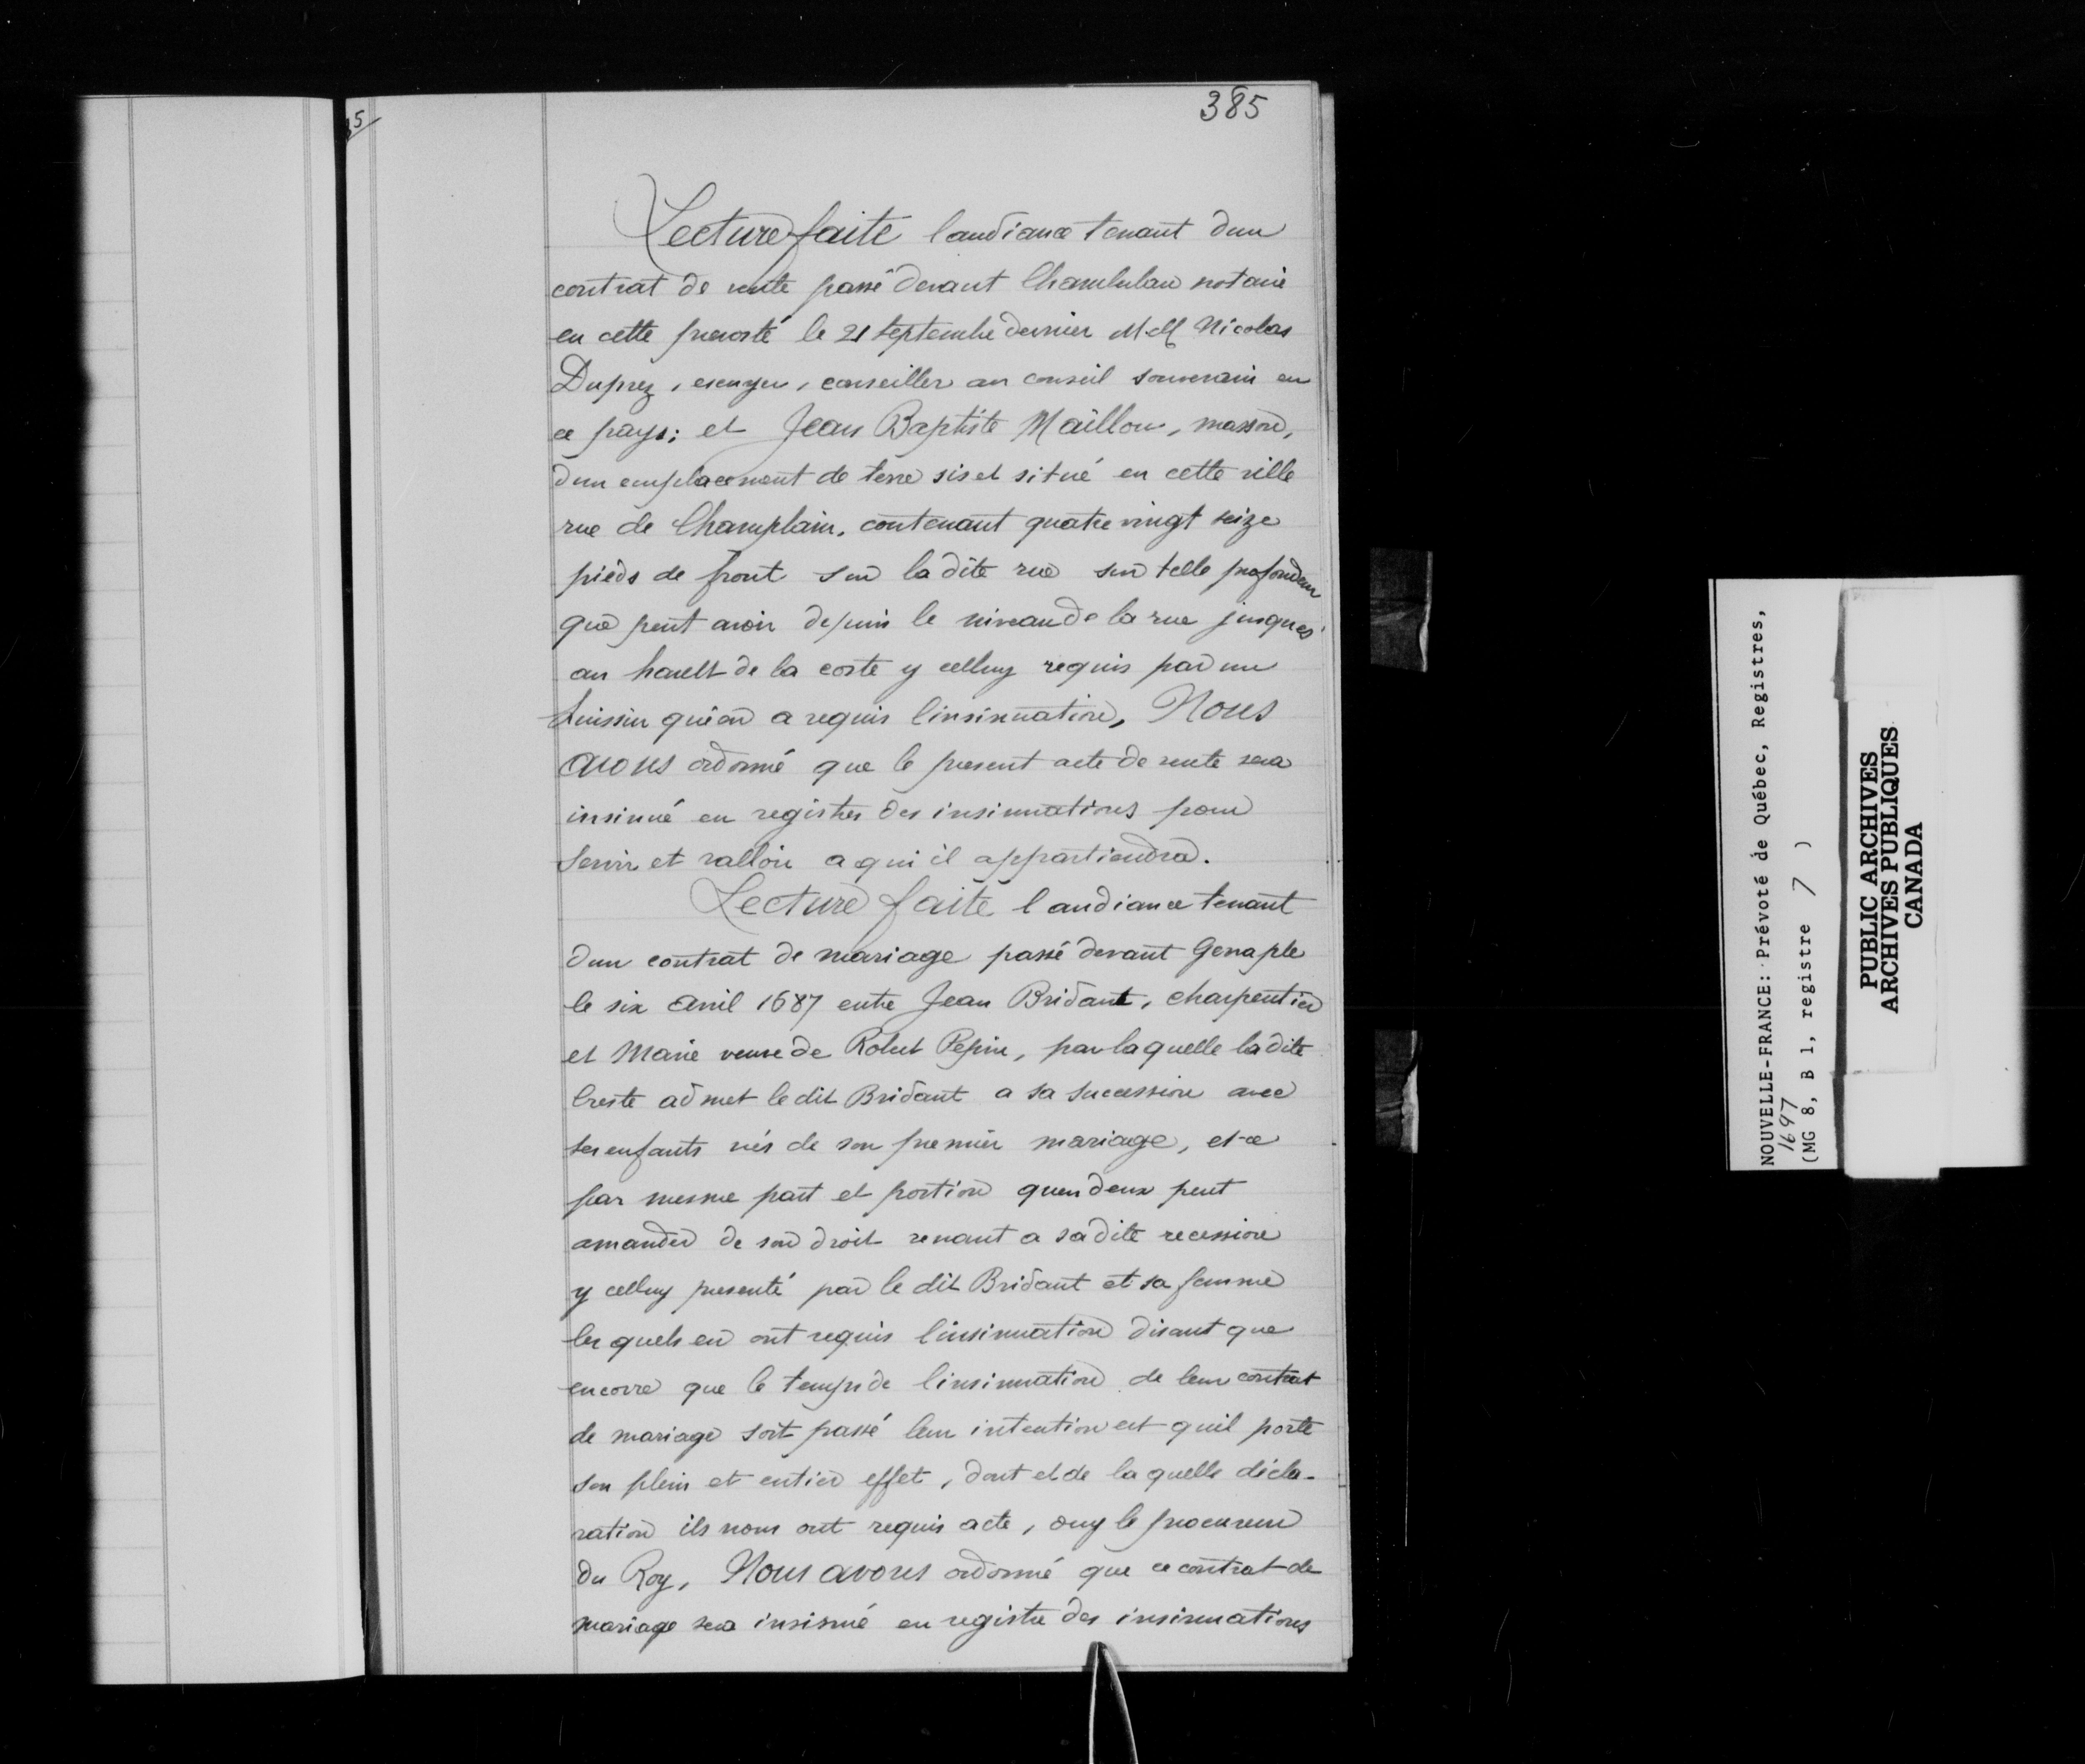 385
5
Lecture faite laudiance tenant dun
contrat de vente passé devant Chambalau notaire
en cette prevosté le 21 septembre dernier M M Nicolas
Duprez, escuyer, conseiller au conseil souverain en
ce pays; et Jean Baptiste Maillou, masson,
dun emplacement de terre sis et situé en cette ville
rue de Champlain, contenant quatre vingt seize
pieds de front sur la dite rue sur telle profondeur
que peut avoir depuis le niveau de la rue jusques
au hault de la coste y celluy requis par un
huissier qui en a requis linsinuation, Nous
avons ordonné que le present acte de vente sera
insinué en registres des insinuations pour
servir et valloir a qui il appartiendra.
Lecture faite laudiance tenant
dun contrat de mariage passé devant Genaple
le six avril 1687 entre Jean Bridaut, charpentier
et Marie veuve de Robert Pepin, par laquelle la dite
Creste admet le dit Bridaut a sa succession avec
ses enfants nés de son premier mariage, et ce
par mesme part et portion quen deux peut
amander de son droit venant a sa dite recession
y celluy presenté par le dit Bridaut et sa femme
les quels en ont requis linsinuation disant que
encorre que le temps de linsinuation de leur contrat
de mariage soit passé leur intention est quil porte
son plein et entier effet, dont et de la quelle décla-
ration ils nous ont requis acte, ouy le procureur
du Roy, Nous avons ordonné que ce contrat de
mariage sera insinué en registre des insinuations
NOUVELLE-FRANCE: Prévoté de Québec, Registres,
1697
(MG 8, B 1, registre 7 )
PUBLIC ARCHIVES
ARCHIVES PUBLIQUES
CANADA